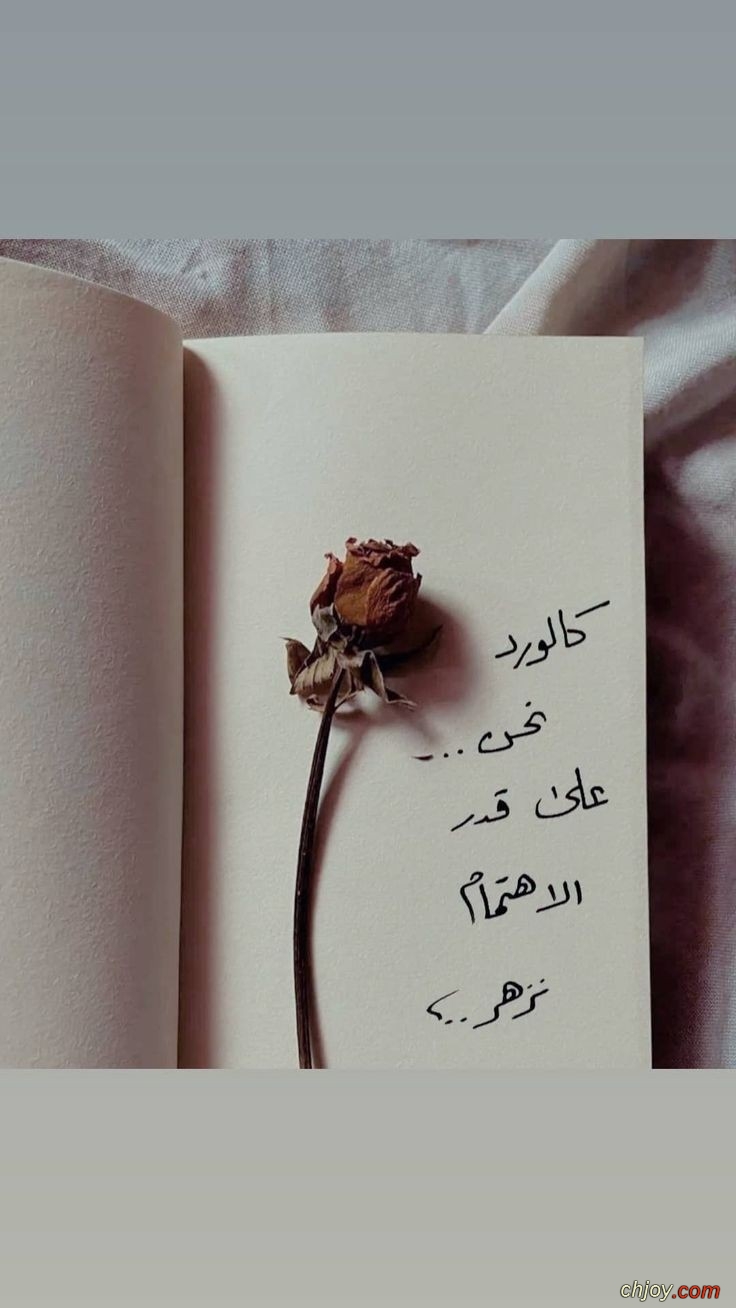 كالورد
نحن...
على قدر
الاهتمام
نزهر..،
chjoy.com